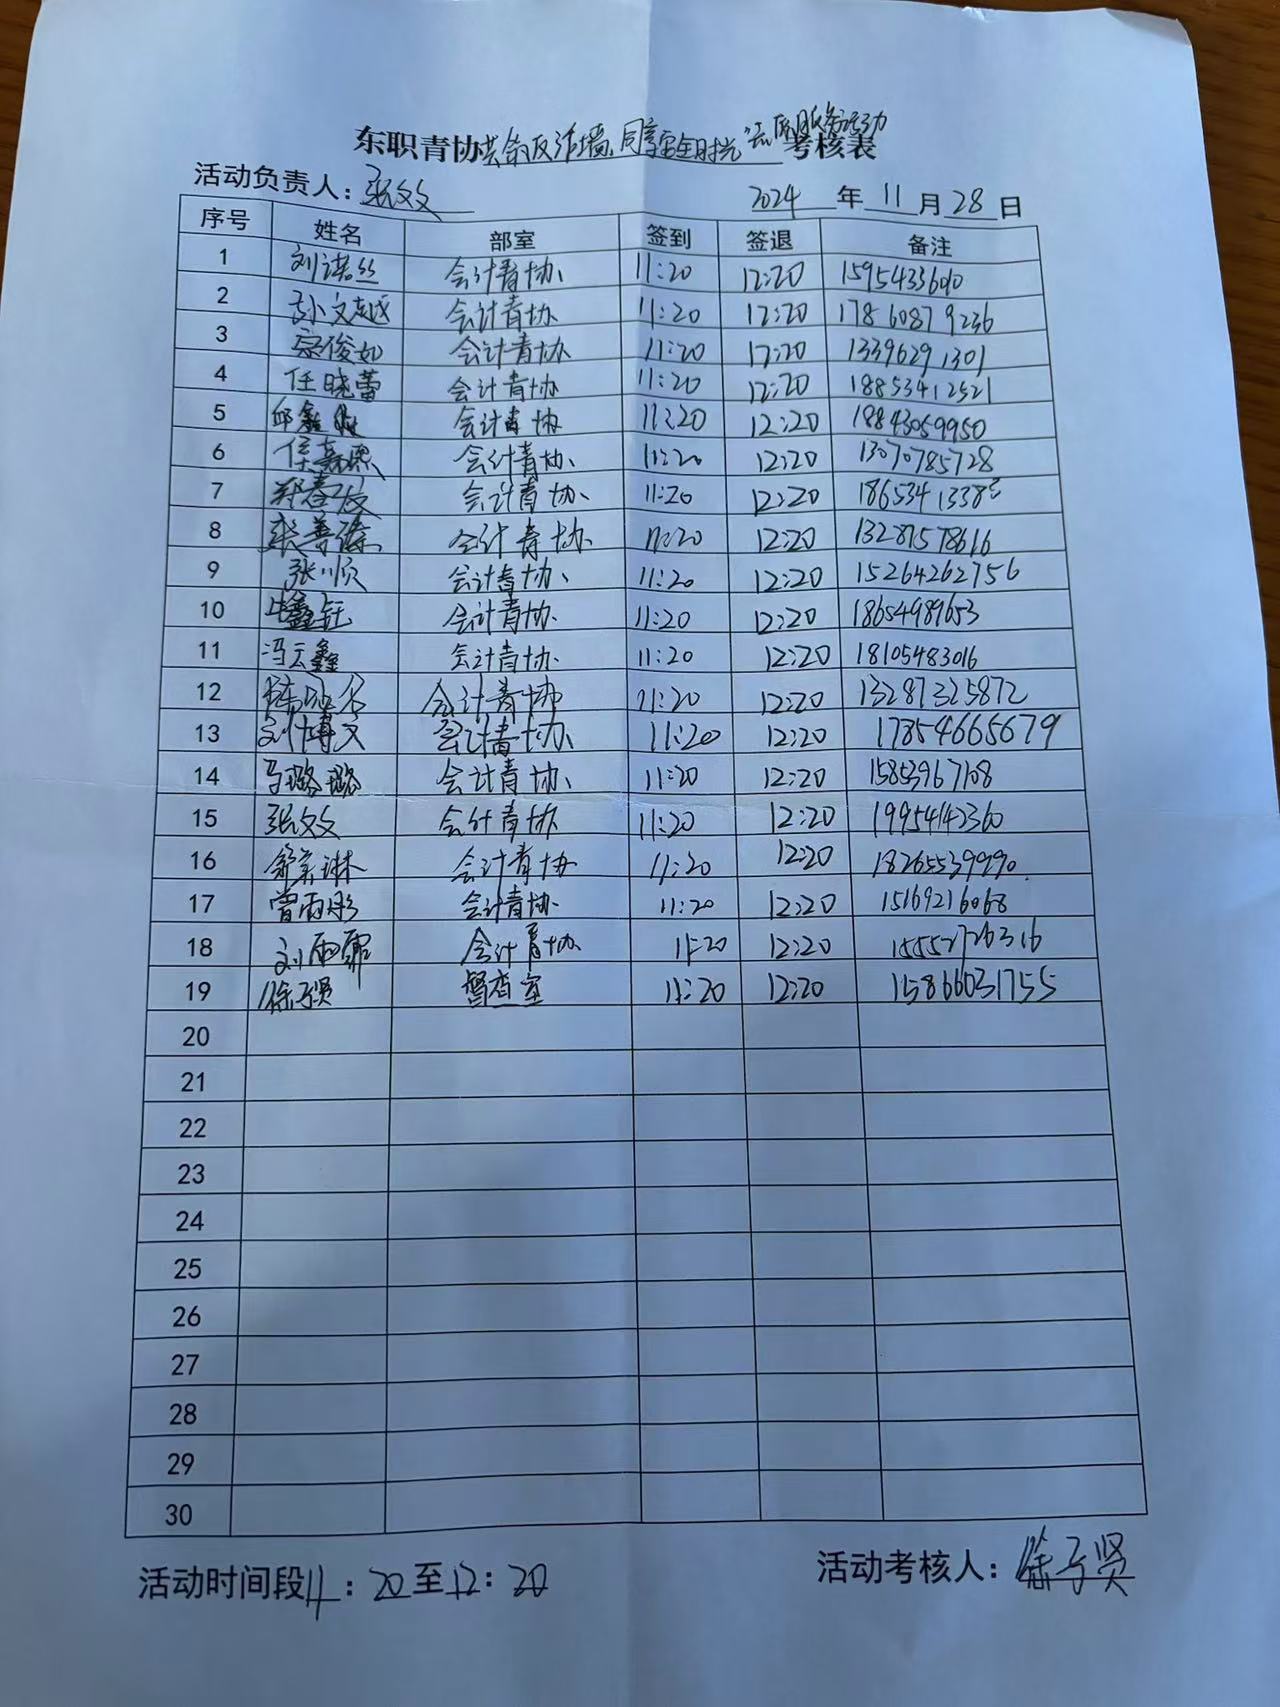 东职青协共筑反诈墙,同享安全时光"志愿服务活动考核表
活动负责人:张文文 2024年11月28日
序号 姓名 部室 签到 签退 备注
1 刘诺丝 会计青协 11:20 12:20 15954336010
2 孙文越 会计青协 11:20 12:20 17860879236
3 宗俊如 会计青协 11:20 12:20 13396291301
4 任晓蕾 会计青协 11:20 12:20 18853412521
5 邱鑫 会计青协 11:20 12:20 18843059950
6 侯嘉熙 会计青协 11:20 12:20 13070785728
7 郑春 会计青协 11:20 12:20 18653413383
8 张善 会计青协 11:20 12:20 13287578616
9 张顺 会计青协 11:20 12:20 15264262756
10 鑫钰 会计青协 11:20 12:20 18654989653
11 冯云鑫 会计青协 11:20 12:20 18105483016
12 会计青协 11:20 12:20 13287325872
13 刘博文 会计青协 11:20 12:20 17854665679
14 马璐璐 会计青协 11:20 12:20 15853967108
15 张文文 会计青协 11:20 12:20 19954142360
16 琳 会计青协 11:20 12:20 18265539990
17 曾雨彤 会计青协 11:20 12:20 15169216068
18 刘雨霏 会计青协 11:20 12:20 15552726316
19 徐子贤 督查室 11:20 12:20 15866031755
20
21
22
23
24
25
26
27
28
29
30
活动时间段11:20至12:20 活动考核人:徐子贤